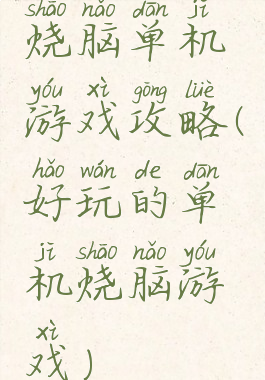 shāo nǎo dān jī
烧脑单机
yóu xì gōng lüè
游戏攻略(
hǎo wán de dān
好玩的单
jī shāo nǎo yóu
机烧脑游
xì
戏)